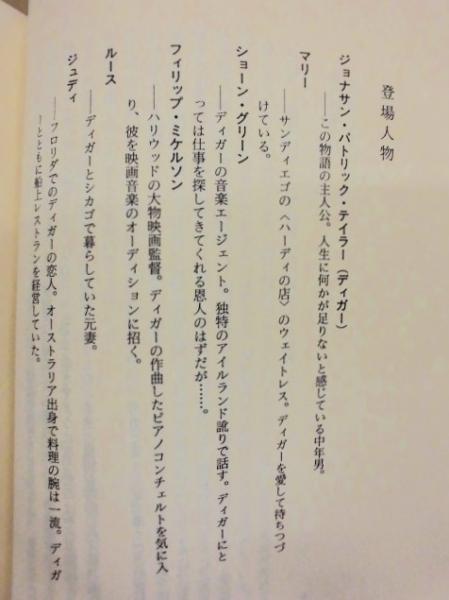 登場人物
ジョナサン・パトリック・テイラー（ディガー）
――この物語の主人公。人生に何かが足りないと感じている中年男。
マリー
――サンディエゴの〈ハーディの店〉のウェイトレス。ディガーを愛して待ちつづ
けている。
ショーン・グリーン
――ディガーの音楽エージェント。独特のアイルランド訛りで話す。ディガーにと
っては仕事を探してきてくれる恩人のはずだが……。
フィリップ・ミケルソン
――ハリウッドの大物映画監督。ディガーの作曲したピアノコンチェルトを気に入
り、彼を映画音楽のオーディションに招く。
ルース
――ディガーとシカゴで暮らしていた元妻。
ジュディ
――フロリダでのディガーの恋人。オーストラリア出身で料理の腕は一流。ディガ
ーとともに船上レストランを経営していた。